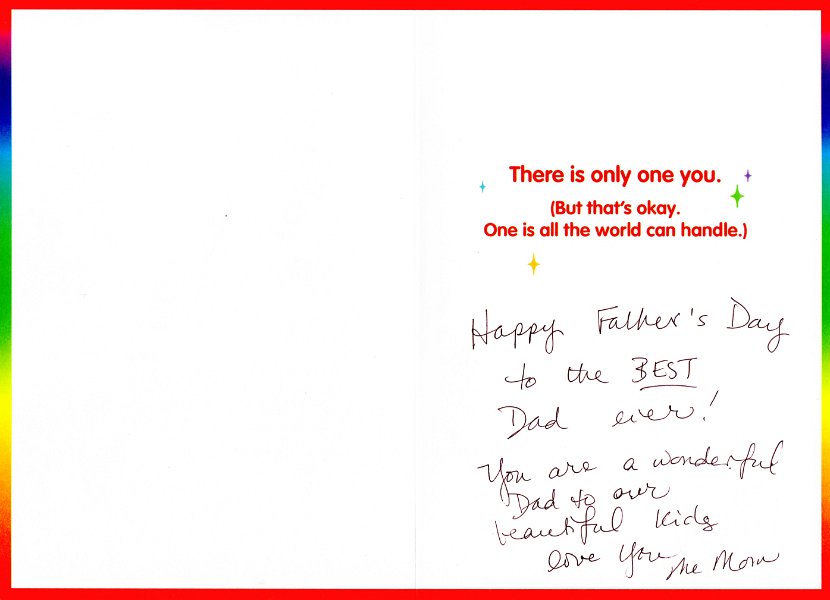 There is only one you.
(But that's okay.
One is all the world can handle.)
Happy Father's Day
to the BEST
Dad ever!
You are a wonderful
Dad to our
beautiful kids
love you
the Mom